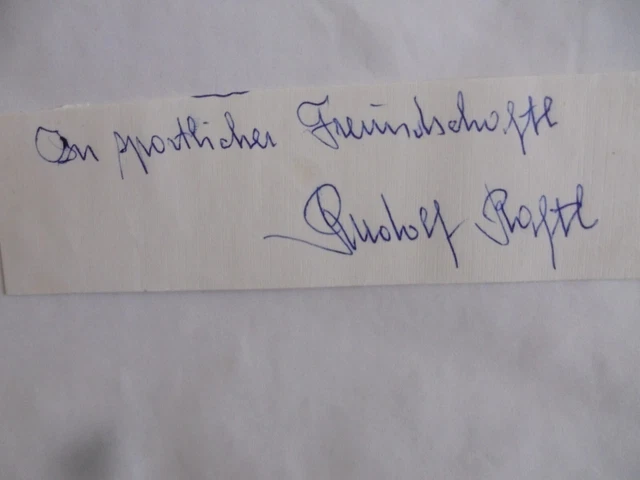 In sportlicher Freundschaft
Rudolf Raftl